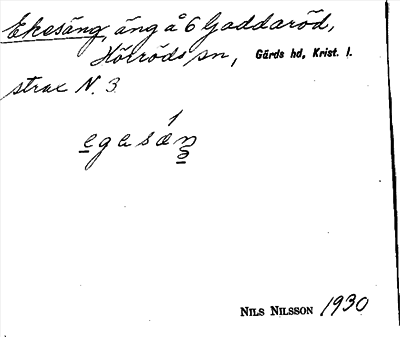 Ekesäng, äng å 6 Gaddaröd,
Hörröds sn, Gärds hd, Krist. l.
strax N. 3
egesäŋ
NILS NILSSON 1930